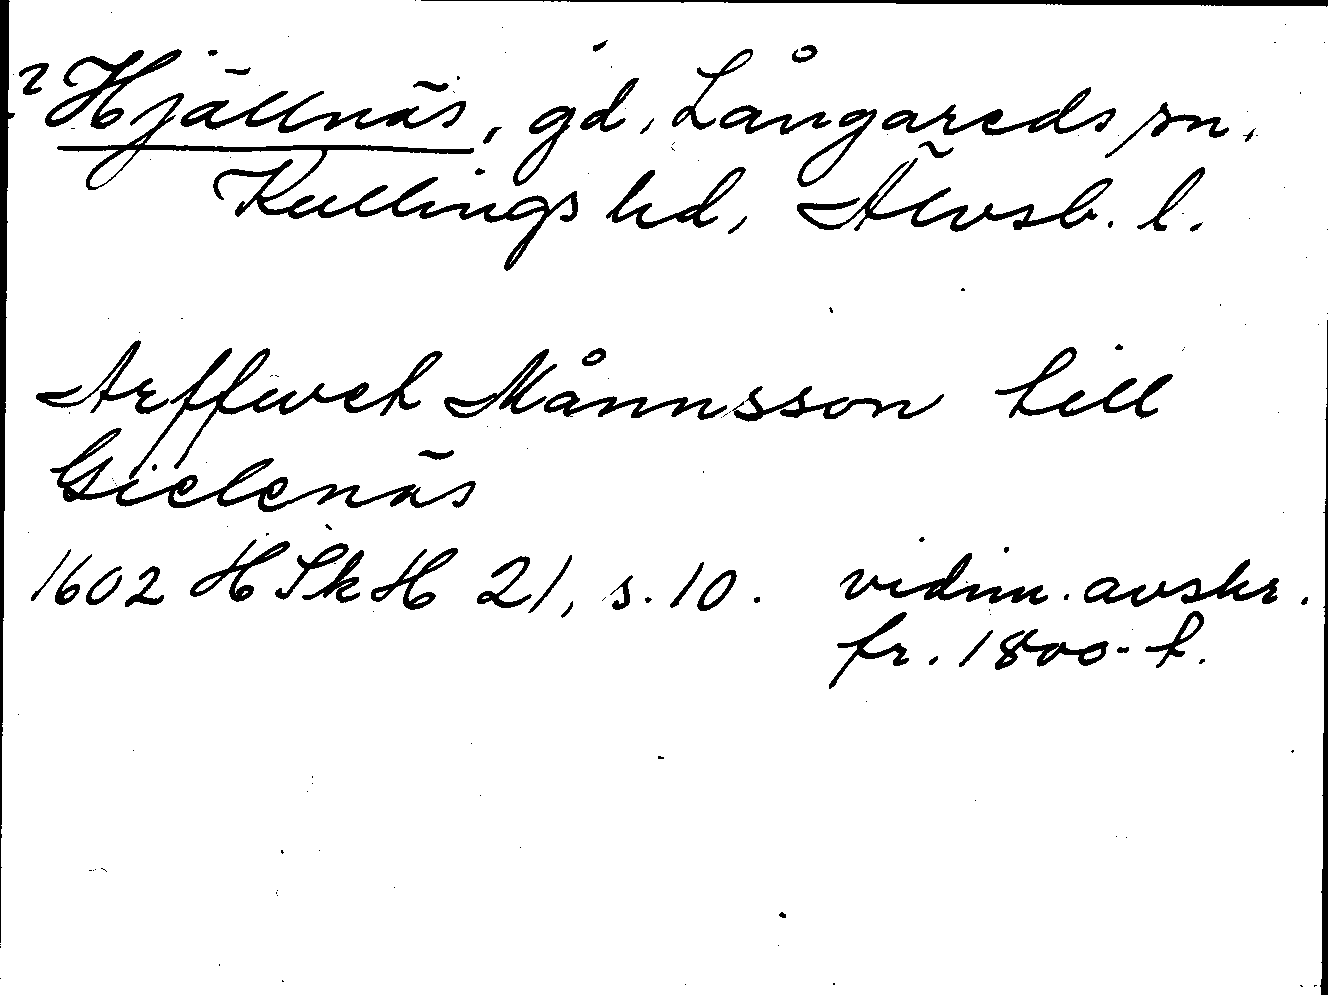 ? Hjällnäs, gd, Långareds sn,
Kullings hd, Älvsb. l.
Arffwet Månnsson till
Gielenäs
1602 HSkH 21, s. 10. vidim. avskr.
fr. 1800-t.